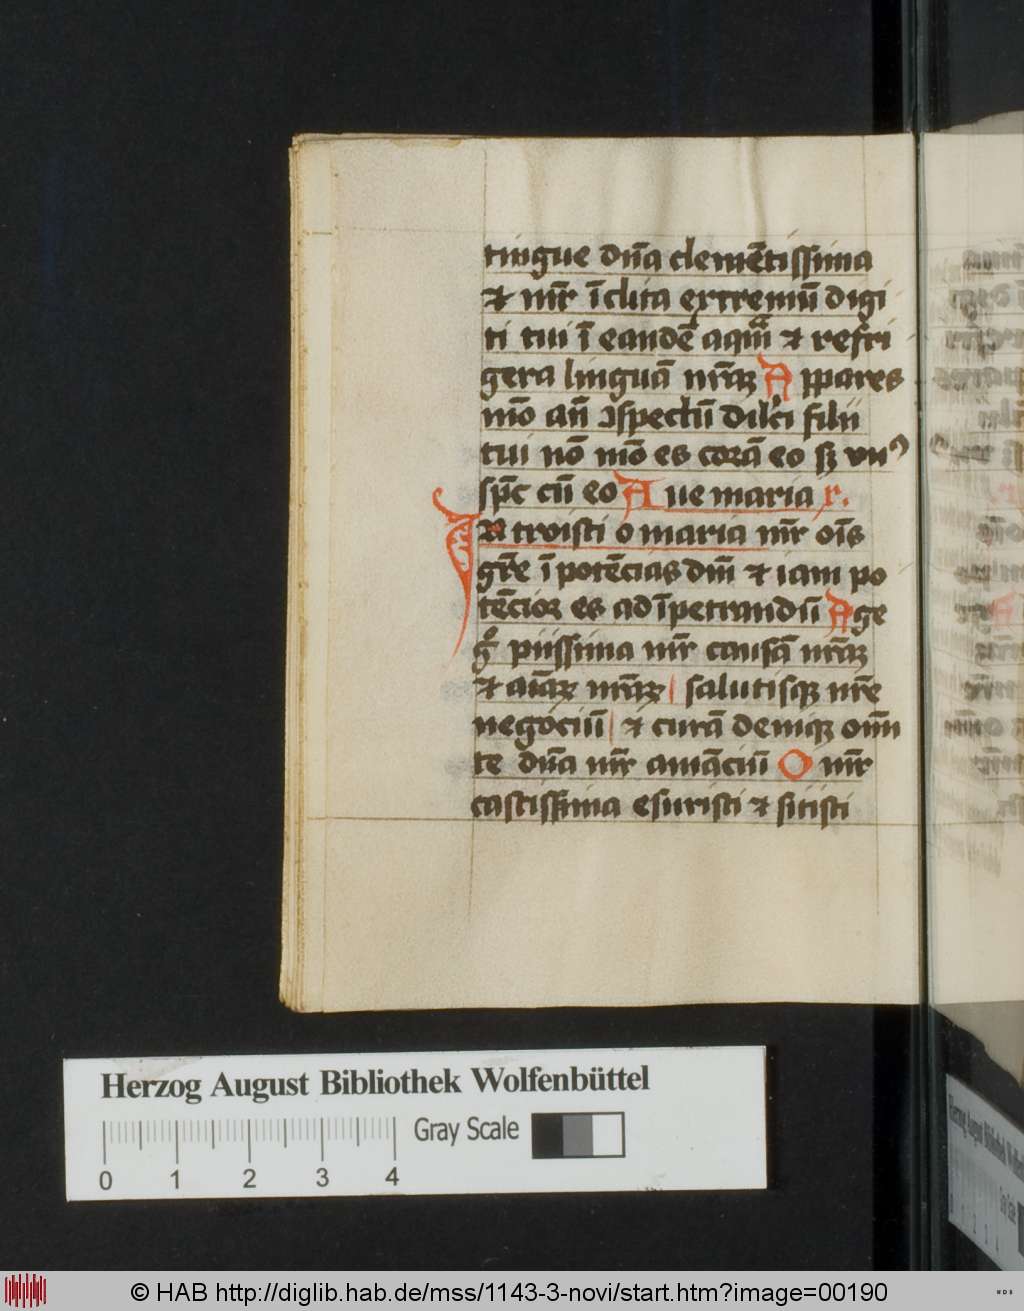 tingue dña clemētissima
⁊ mr̄ īclita extremū digi
ti tui ī eandē aquā ⁊ refri
gera linguā nr̄aꝝ Appares
mō an̄ ꝯspectū dilc̄i filii
tui nō mō es corā eo sꝫ vnꝰ
sp̄c cū eo Aue maria r.
Introisti o maria mr̄ oīs
gr̄e ī potēcias dn̄i ⁊ iam po
tēcior es ad īpetrandū Age
gͦ piissima mr̄ causā nr̄aꝝ
⁊ aīaꝝ nr̄aꝝ salutisqꝫ nr̄e
negociū ⁊ curā deniqꝫ om̄i
te dn̄a mr̄ amāciū O mr̄
castissima esuristi ⁊ sitisti
Herzog August Bibliothek Wolfenbüttel
Gray Scale
0 1 2 3 4
© HAB http://diglib.hab.de/mss/1143-3-novi/start.htm?image=00190